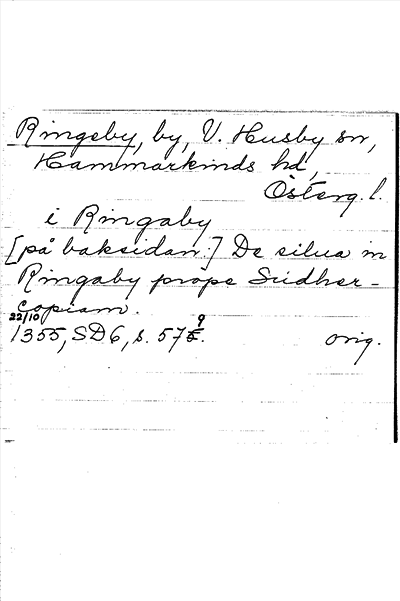 Ringeby, by, V. Husby sn,
Hammarkinds hd,
Österg. l.
i Ringaby
[på baksidan:] De silua in
Ringaby prope Sudher-
copiam.
22/10
1355, SD6, s. 579. orig.